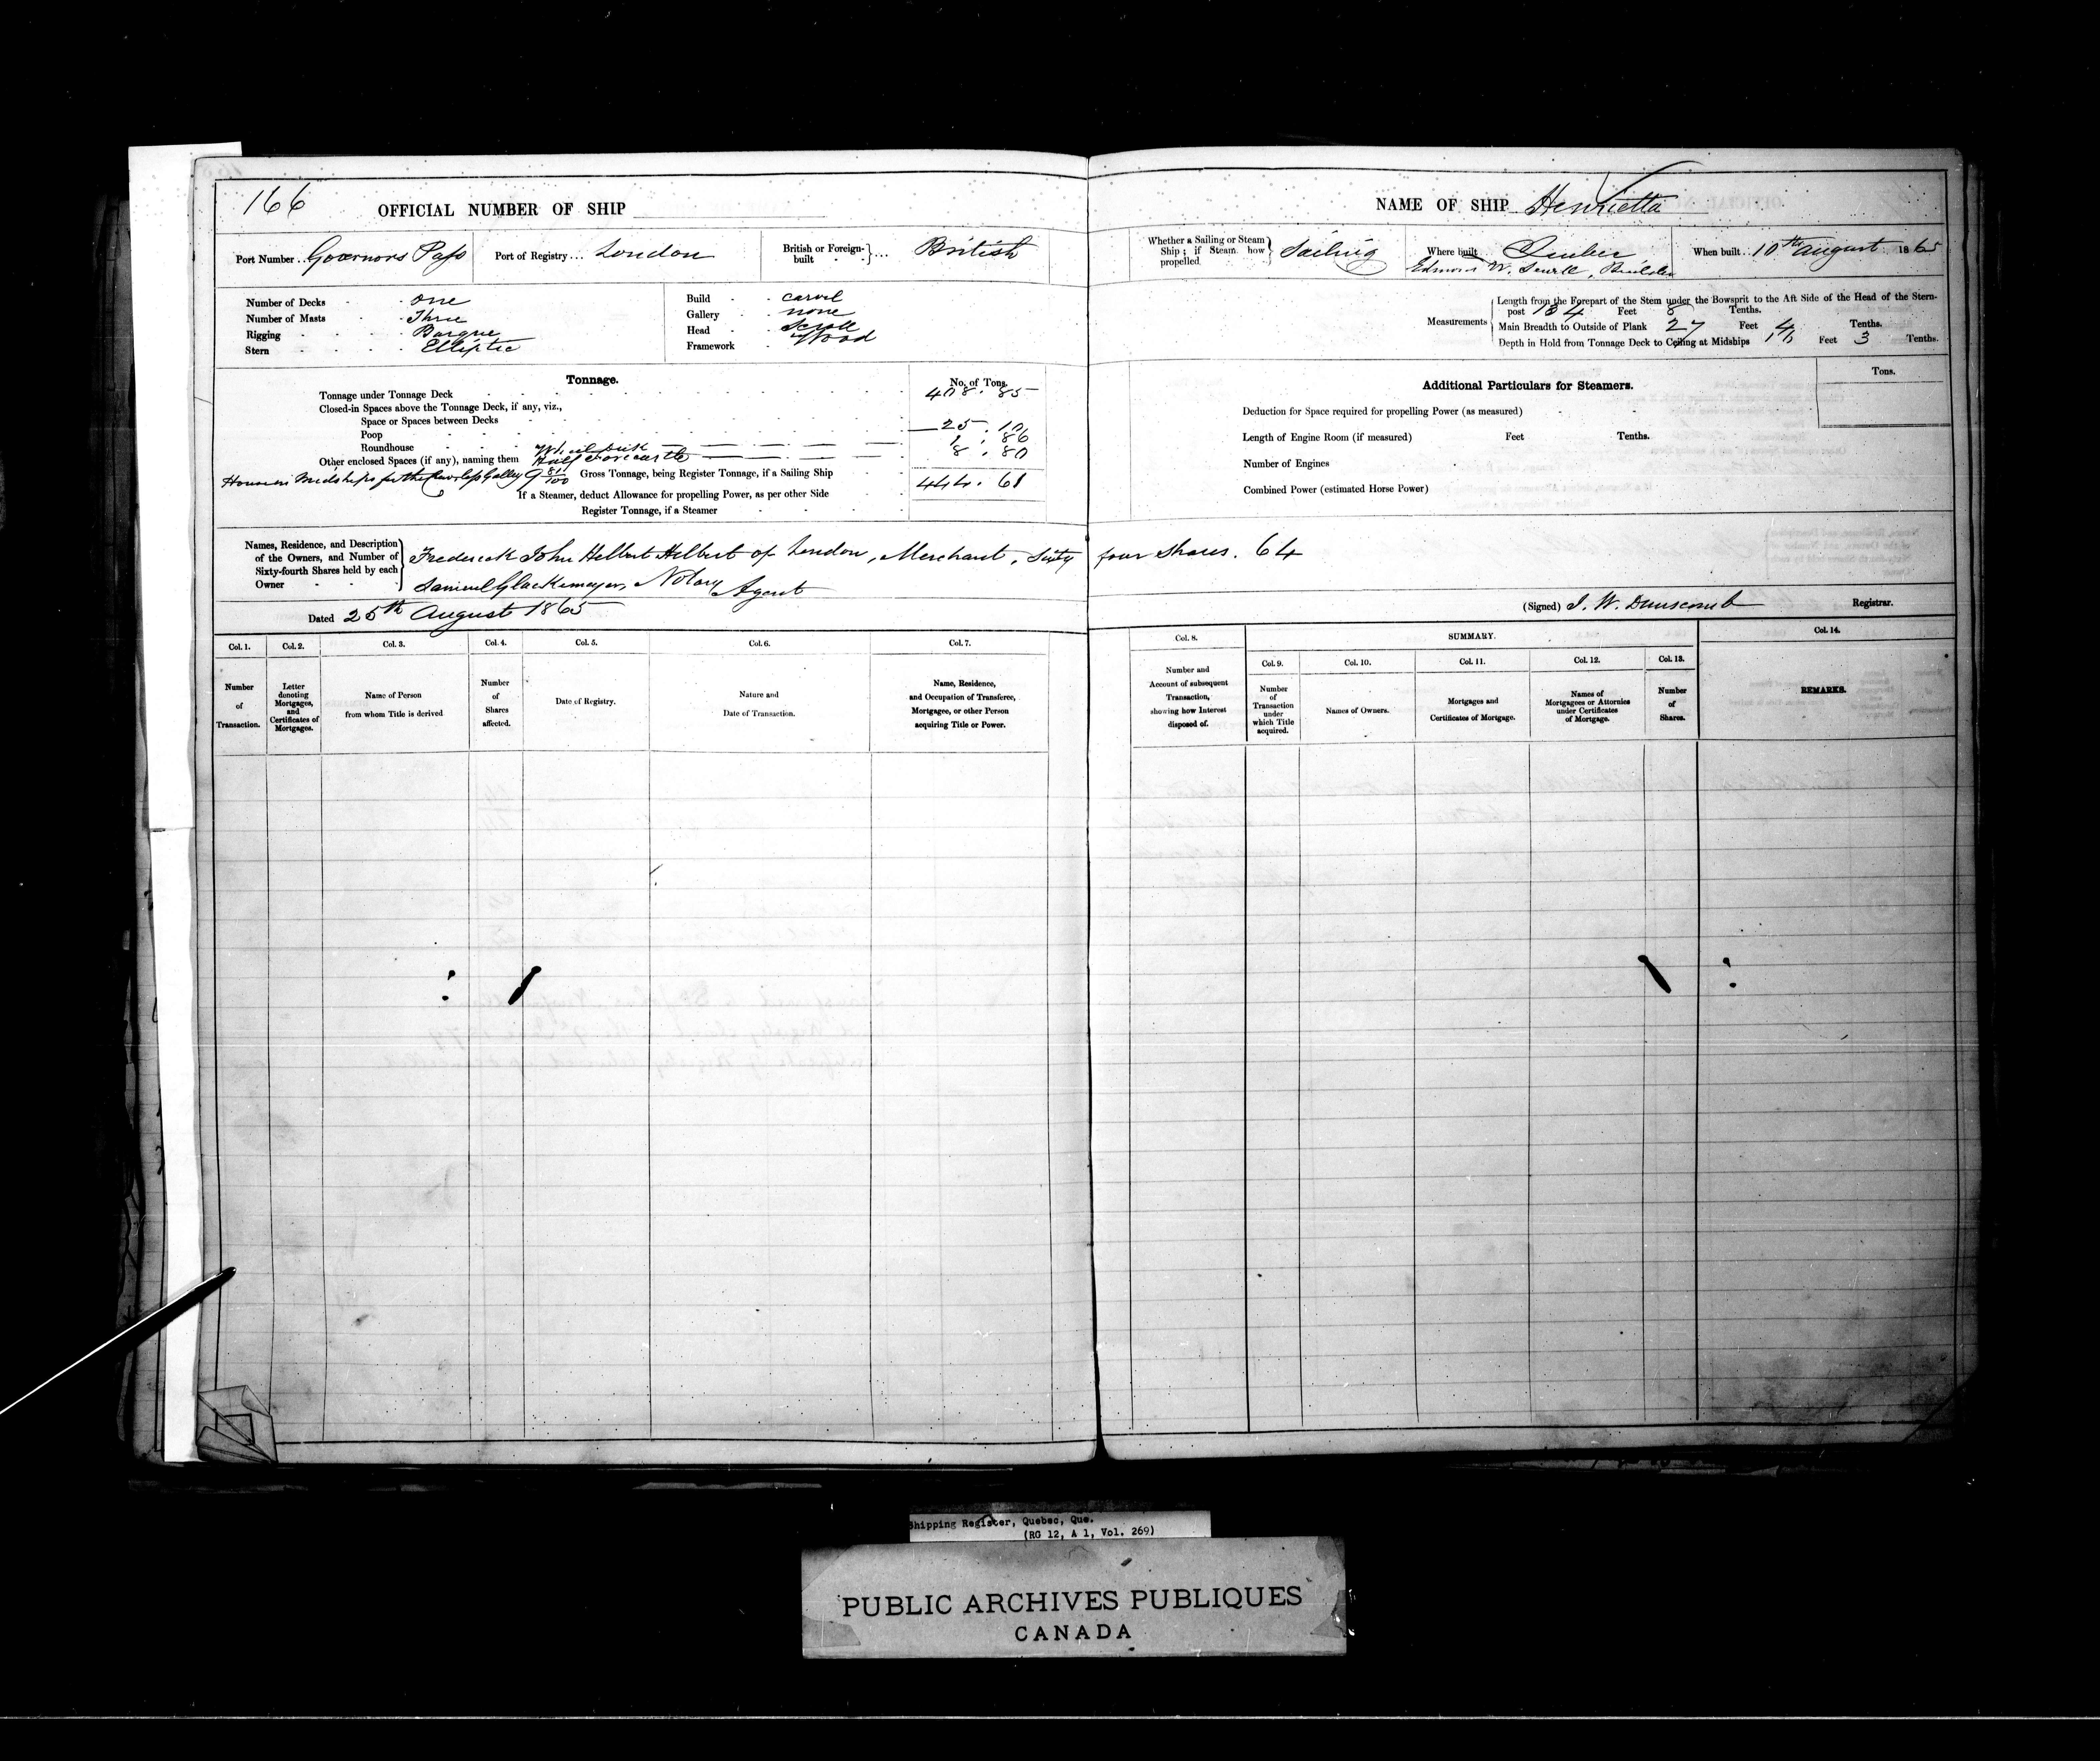 166
OFFICIAL NUMBER OF SHIP
Port Number . . Governors Pass
Port of Registry . . . London
British or Foreign-built } . . . British
Number of Decks - - one
Number of Masts - - Three
Rigging - - Barque
Stern - - - - Elliptic
Build - - carvel
Gallery - - none
Head - - Scroll
Framework - Wood
Tonnage.
No. of Tons.
Tonnage under Tonnage Deck
Closed-in Spaces above the Tonnage Deck, if any, viz.,
Space or Spaces between Decks
Poop 25 . 10
Roundhouse 1 . 86
Other enclosed Spaces (if any), naming them Half Forecastle 8 . 80
House in Midships for the Crew less Galley
Gross Tonnage, being Register Tonnage, if a Sailing Ship 444. 61
If a Steamer, deduct Allowance for propelling Power, as per other Side
Register Tonnage, if a Steamer
Names, Residence, and Description of the Owners, and Number of Sixty-fourth Shares held by each Owner
Frederick John Helbert Helbert of London, Merchant, Sixty four Shares. 64
Samuel Glackemeyer, Notary
Agent
Dated 25th August 1865
Col. 1.
Number of Transaction.
Col. 2.
Letter denoting Mortgages, and Certificates of Mortgages.
Col. 3.
Name of Person from whom Title is derived
Col. 4.
Number of Shares affected.
Col. 5.
Date of Registry.
Col. 6.
Nature and Date of Transaction.
Col. 7.
Name, Residence, and Occupation of Transferee, Mortgagee, or other Person acquiring Title or Power.
NAME OF SHIP Henrietta
Whether a Sailing or Steam Ship ; if Steam how propelled } Sailing
Where built Quebec
Edmund W. Sewell, Builder
When built . . 10th August 1865
Measurements
Length from the Forepart of the Stem under the Bowsprit to the Aft Side of the Head of the Stern-
post 134 Feet 8 Tenths.
Main Breadth to Outside of Plank 27 Feet 4 Tenths.
Depth in Hold from Tonnage Deck to Ceiling at Midships Feet 3 Tenths.
Additional Particulars for Steamers.
Tons.
Deduction for Space required for propelling Power (as measured)
Length of Engine Room (if measured) Feet Tenths.
Number of Engines
Combined Power (estimated Horse Power)
(Signed) J. W. Dunscomb Registrar.
Col. 8.
Number and Account of subsequent Transaction, showing how Interest disposed of.
SUMMARY.
Col. 9.
Number of Transaction under which Title acquired.
Col. 10.
Names of Owners.
Col. 11.
Mortgages and Certificates of Mortgage.
Col. 12.
Names of Mortgagees or Attornies under Certificates of Mortgage.
Col. 13.
Number of Shares.
Col. 14.
REMARKS.
Shipping Register, Quebec, Que.
(RG 12, A 1, Vol. 269)
PUBLIC ARCHIVES PUBLIQUES
CANADA